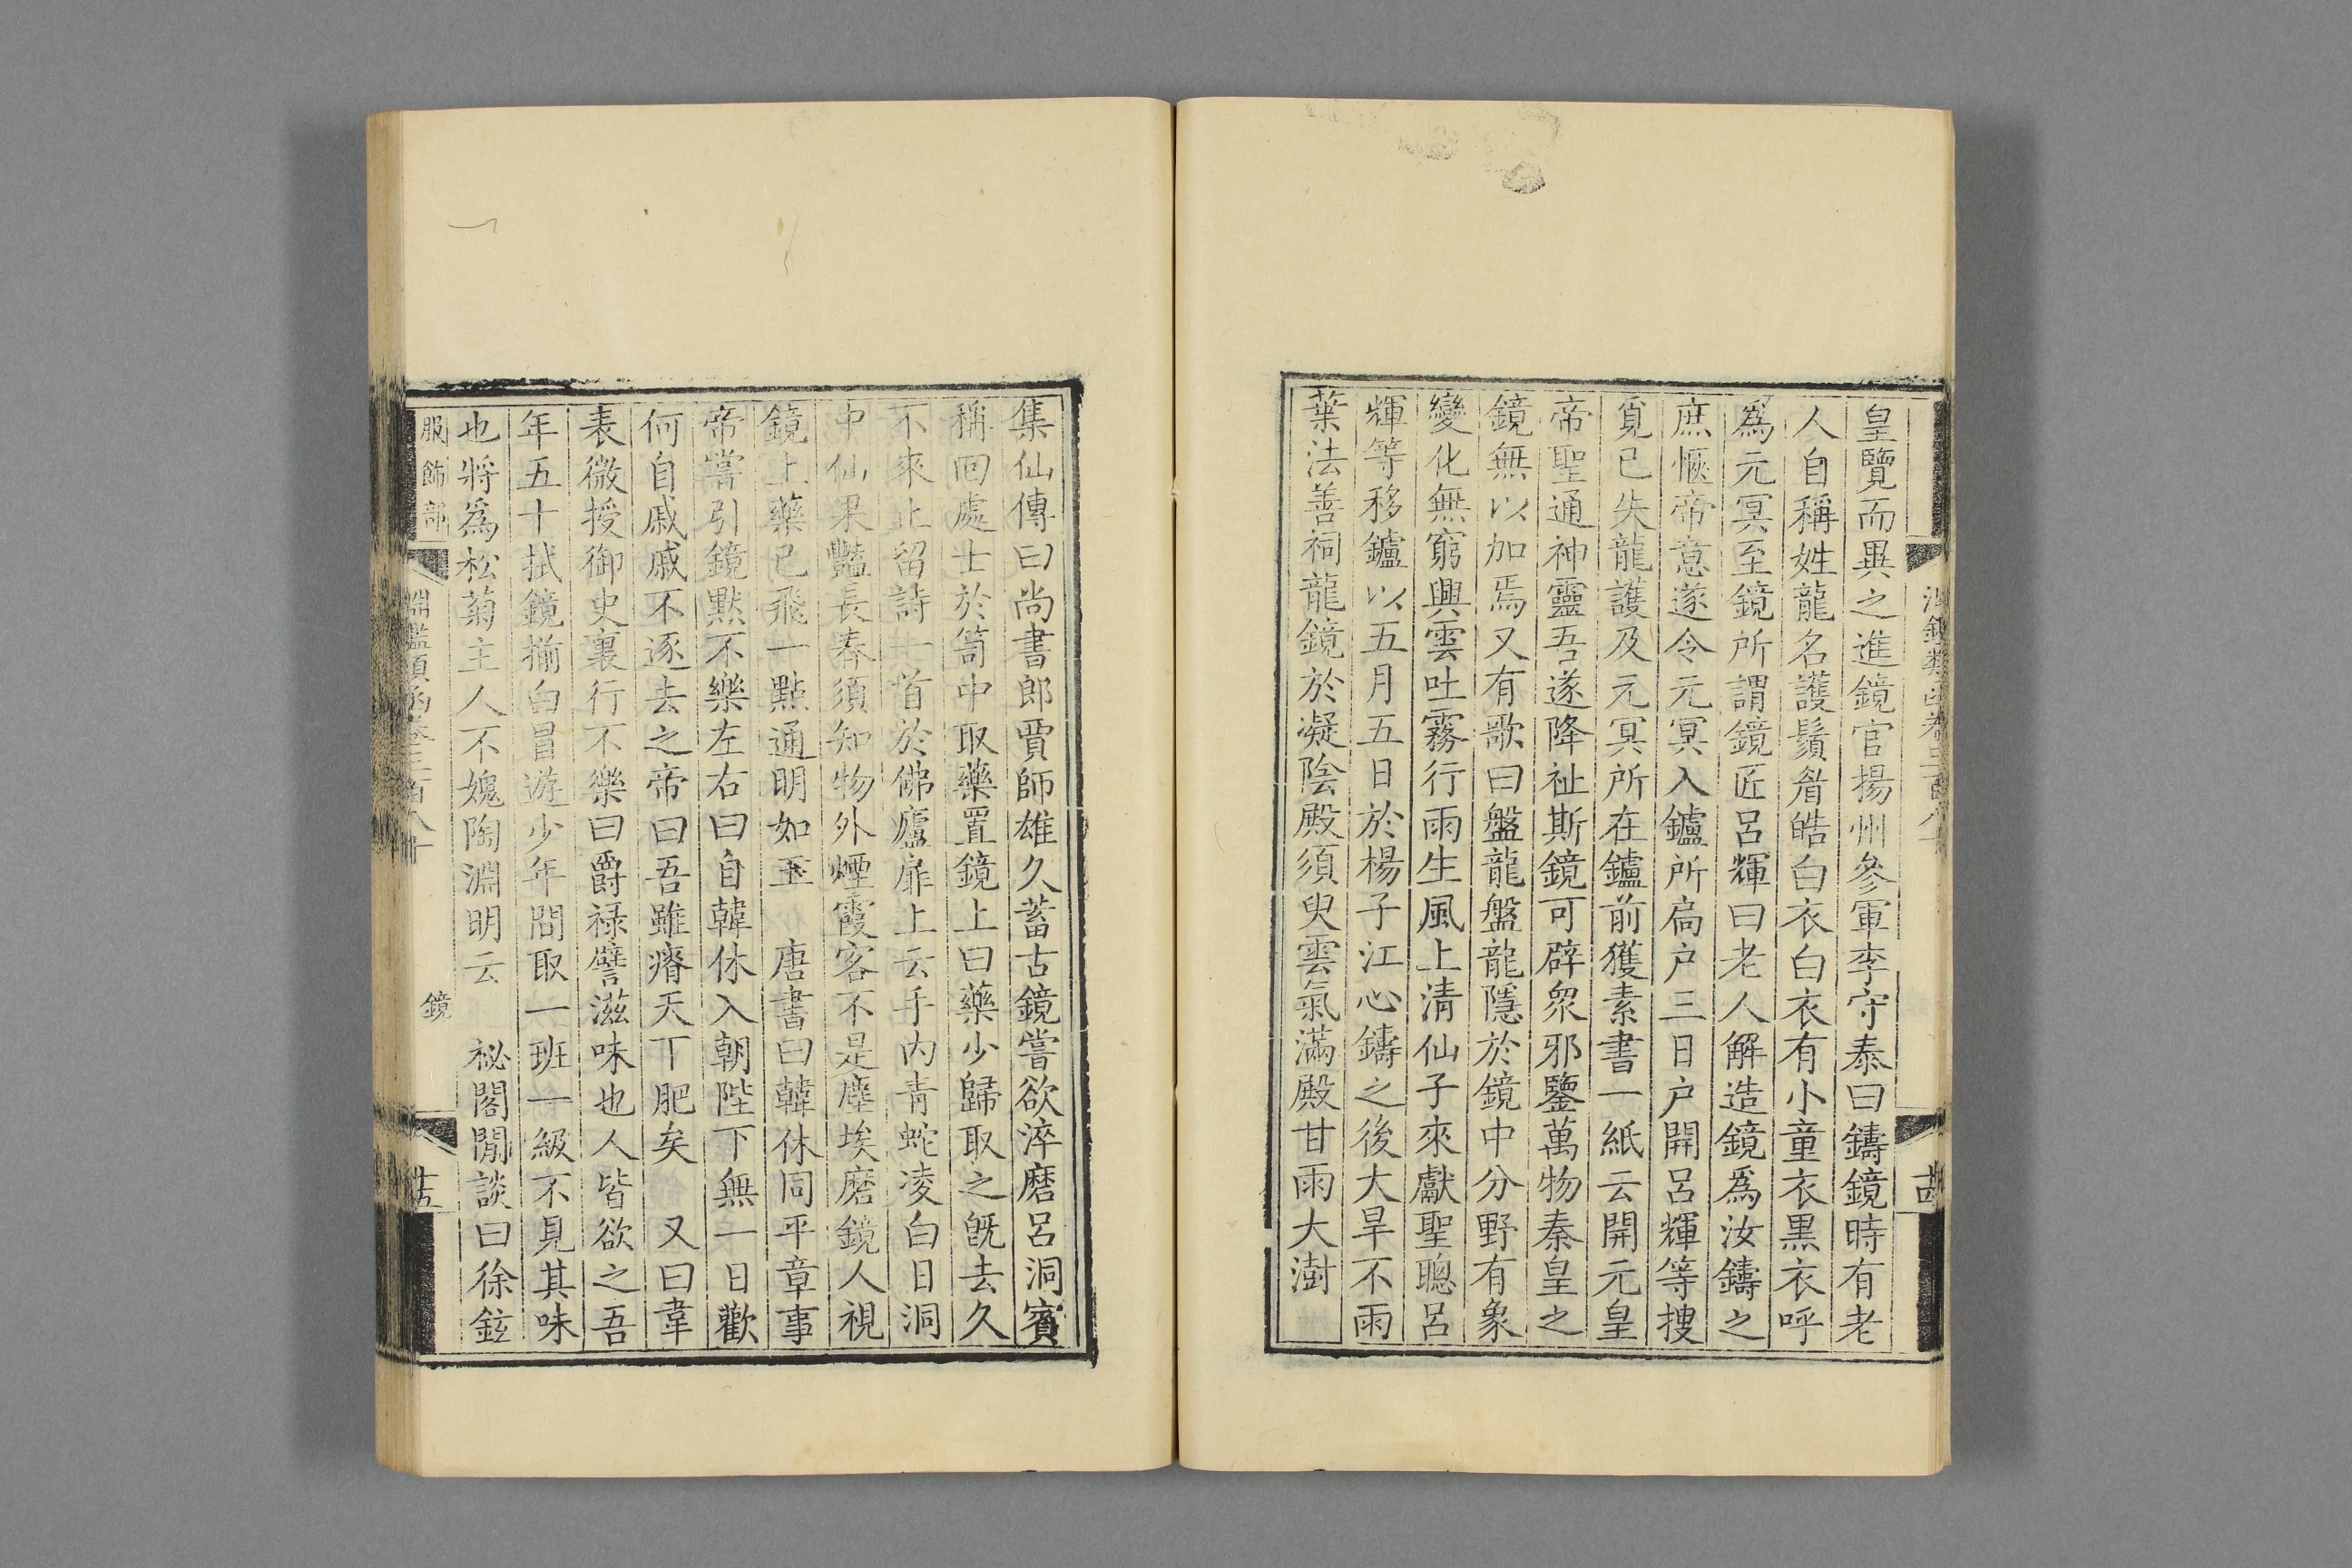 皇覽而異之進鏡官揚州參軍李守泰曰鑄鏡時有老
人自稱姓龍名護鬚眉皓白衣白衣有小童衣黑衣呼
爲元冥至鏡所謂鏡匠呂輝曰老人解造鏡爲汝鑄之
庶愜帝意遂令元冥入鑪所扃户三日户開呂輝等搜
覓已失龍護及元冥所在鑪前獲素書一紙云開元皇
帝聖通神靈吾遂降祉斯鏡可辟衆邪鑒萬物秦皇之
鏡無以加焉又有歌曰盤龍盤龍隱於鏡中分野有象
變化無窮興雲吐霧行雨生風上清仙子來獻聖聰呂
輝等移鑪以五月五日於楊子江心鑄之後大旱不雨
葉法善祠龍鏡於凝陰殿須臾雲氣滿殿甘雨大澍
集仙傳曰尚書郎賈師雄久蓄古鏡嘗欲淬磨呂洞賓
稱回處士於笥中取藥置鏡上曰藥少歸取之旣去久
不來止留詩一首於佛廬扉上云手内青蛇凌白日洞
中仙果豔長春須知物外煙霞客不是塵埃磨鏡人視
鏡上藥已飛一點通明如玉 唐書曰韓休同平章事
帝嘗引鏡默不樂左右曰自韓休入朝陛下無一日歡
何自戚戚不逐去之帝曰吾雖瘠天下肥矣 又曰韋
表微授御史裏行不樂曰爵祿譬滋味也人皆欲之吾
年五十拭鏡揃白冒遊少年間取一班一級不見其味
也將爲松菊主人不媿陶淵明云 祕閣閒談曰徐鉉
服飾部
淵鑑類函卷三百八十
鏡
廿五